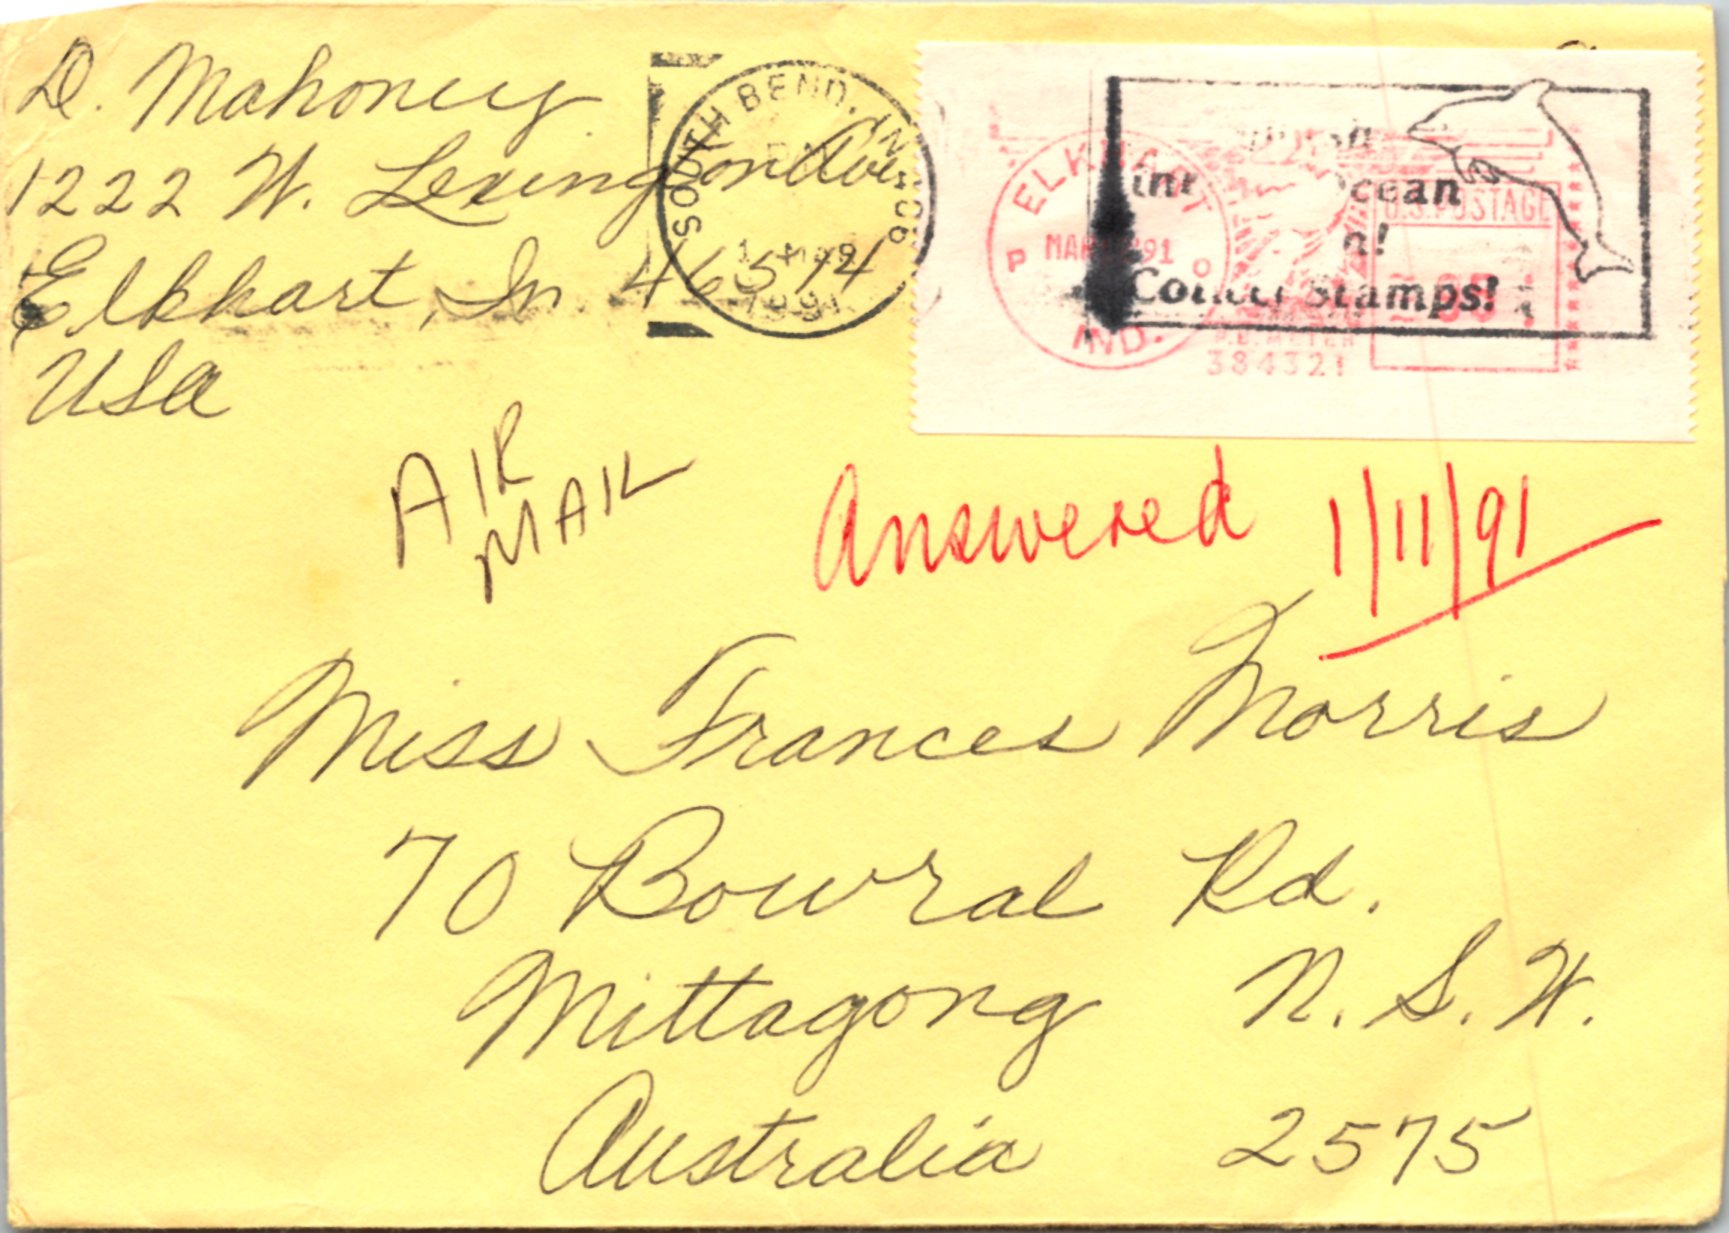 D. Mahoney
1222 W. Lexington Ave.
Elkhart, In 46514
USA
SOUTH BEND, IN
1991
ELKHART
P O
MAR 91
IND.
U.S. POSTAGE
P.B. METER
384321
Ocean
Collect Stamps!
AIR
MAIL
Answered 1/11/91
Miss Frances Morris
70 Bowral Rd.
Mittagong N.S.W.
Australia 2575